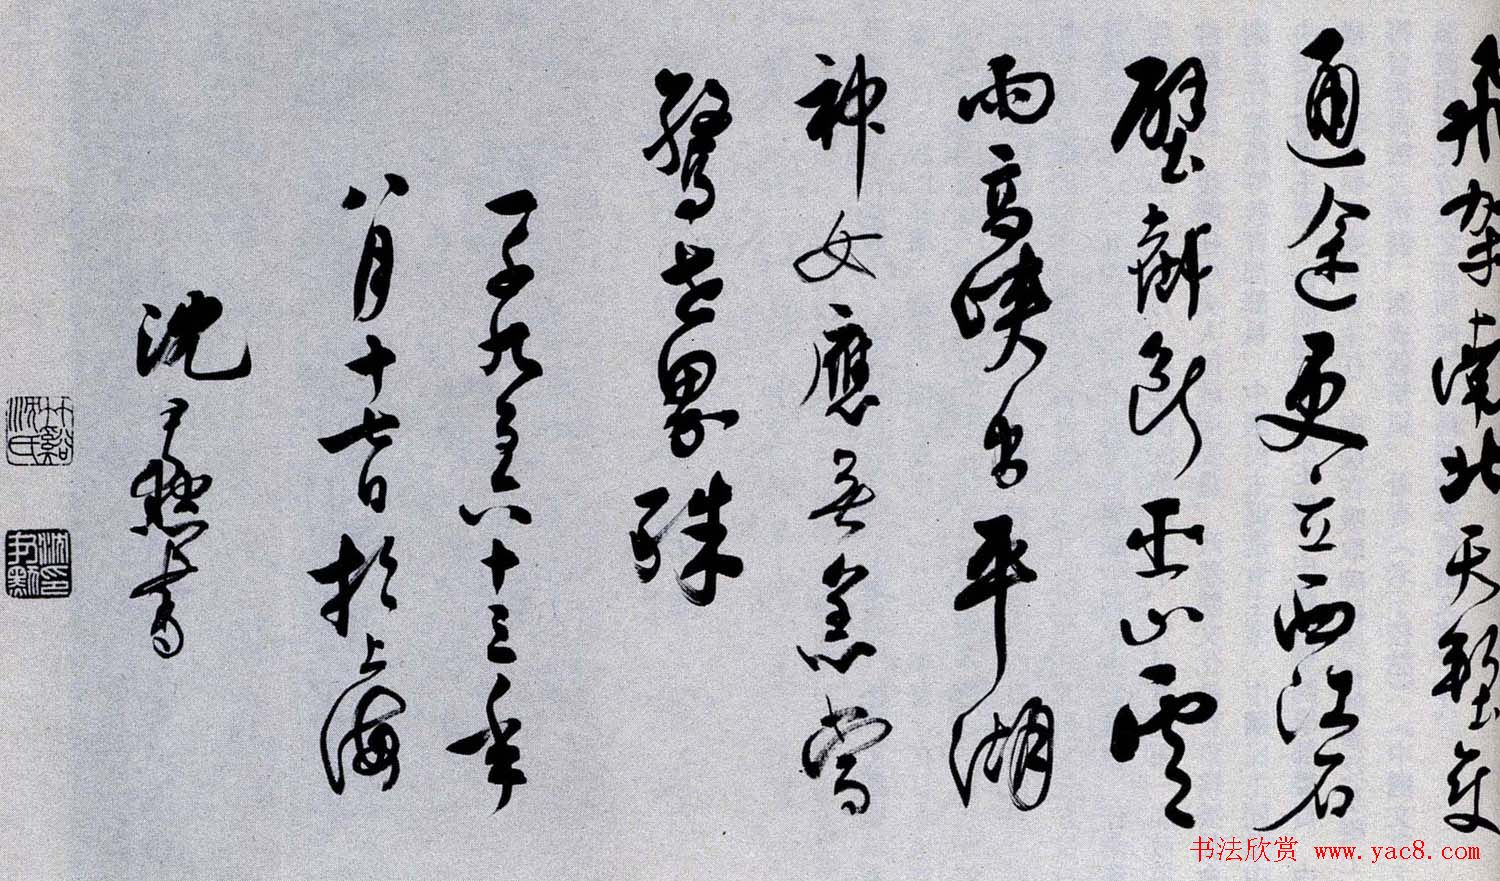 飛架南北天塹變
通途更立西江石
壁截斷巫山雲
雨高峽出平湖
神女應無恙當
驚世界殊
一千九百六十三年
八月十七日於上海
沈尹默書
竹谿沈氏
沈尹默印
书法欣赏 www.yac8.com